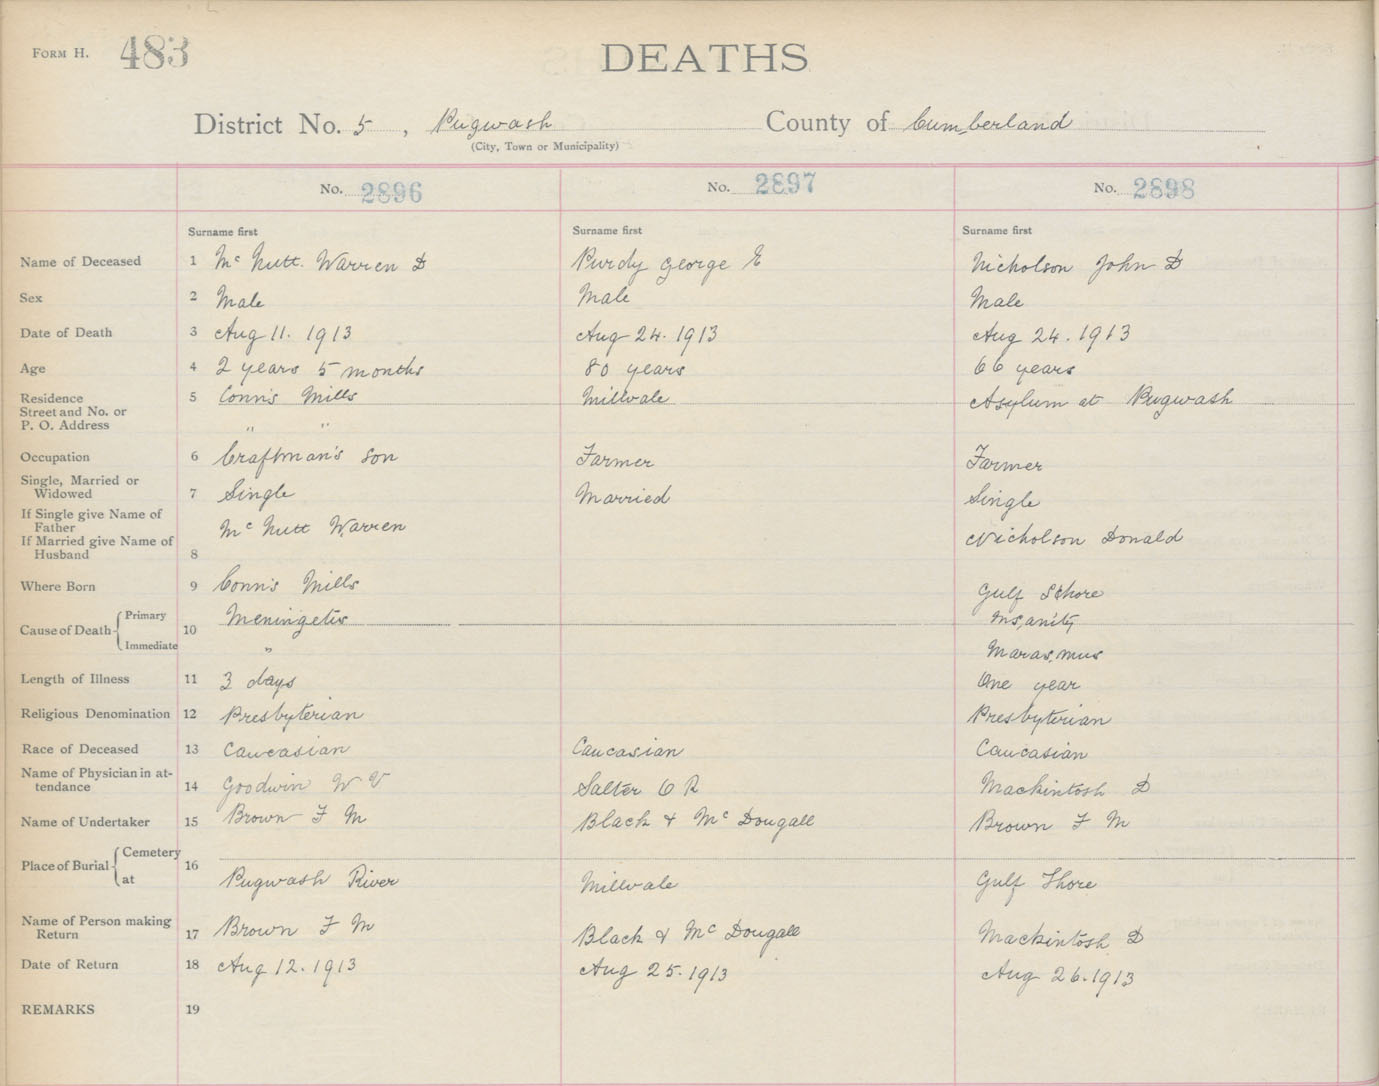 FORM H. 483
DEATHS
District No. 5, Pugwash County of Cumberland
(City, Town or Municipality)
No. 2896 No. 2897 No. 2898
Surname first Surname first Surname first
Name of Deceased 1 Mc Nutt. Warren D Purdy George E Nicholson John D
Sex 2 Male Male Male
Date of Death 3 Aug 11. 1913 Aug 24. 1913 Aug 24. 1913
Age 4 2 years 5 months 80 years 66 years
Residence 5 Conn's Mills Millvale Asylum at Pugwash
Street and No. or
P. O. Address " "
Occupation 6 Craftman's son Farmer Farmer
Single, Married or
Widowed 7 Single Married Single
If Single give Name of
Father Mc Nutt Warren Nicholson Donald
If Married give Name of
Husband 8
Where Born 9 Conn's Mills Gulf Shore
Primary Meningetis Insanity
Cause of Death 10
Immediate " Marasmus
Length of Illness 11 3 days One year
Religious Denomination 12 Presbyterian Presbyterian
Race of Deceased 13 Caucasian Caucasian Caucasian
Name of Physician in at-
tendance 14 Goodwin W V Salter C R Mackintosh D
Name of Undertaker 15 Brown F M Black & Mc Dougall Brown F M
Cemetery
Place of Burial 16
at Pugwash River Millvale Gulf Shore
Name of Person making
Return 17 Brown F M Black & Mc Dougall Mackintosh D
Date of Return 18 Aug 12. 1913 Aug 25. 1913 Aug 26. 1913
REMARKS 19